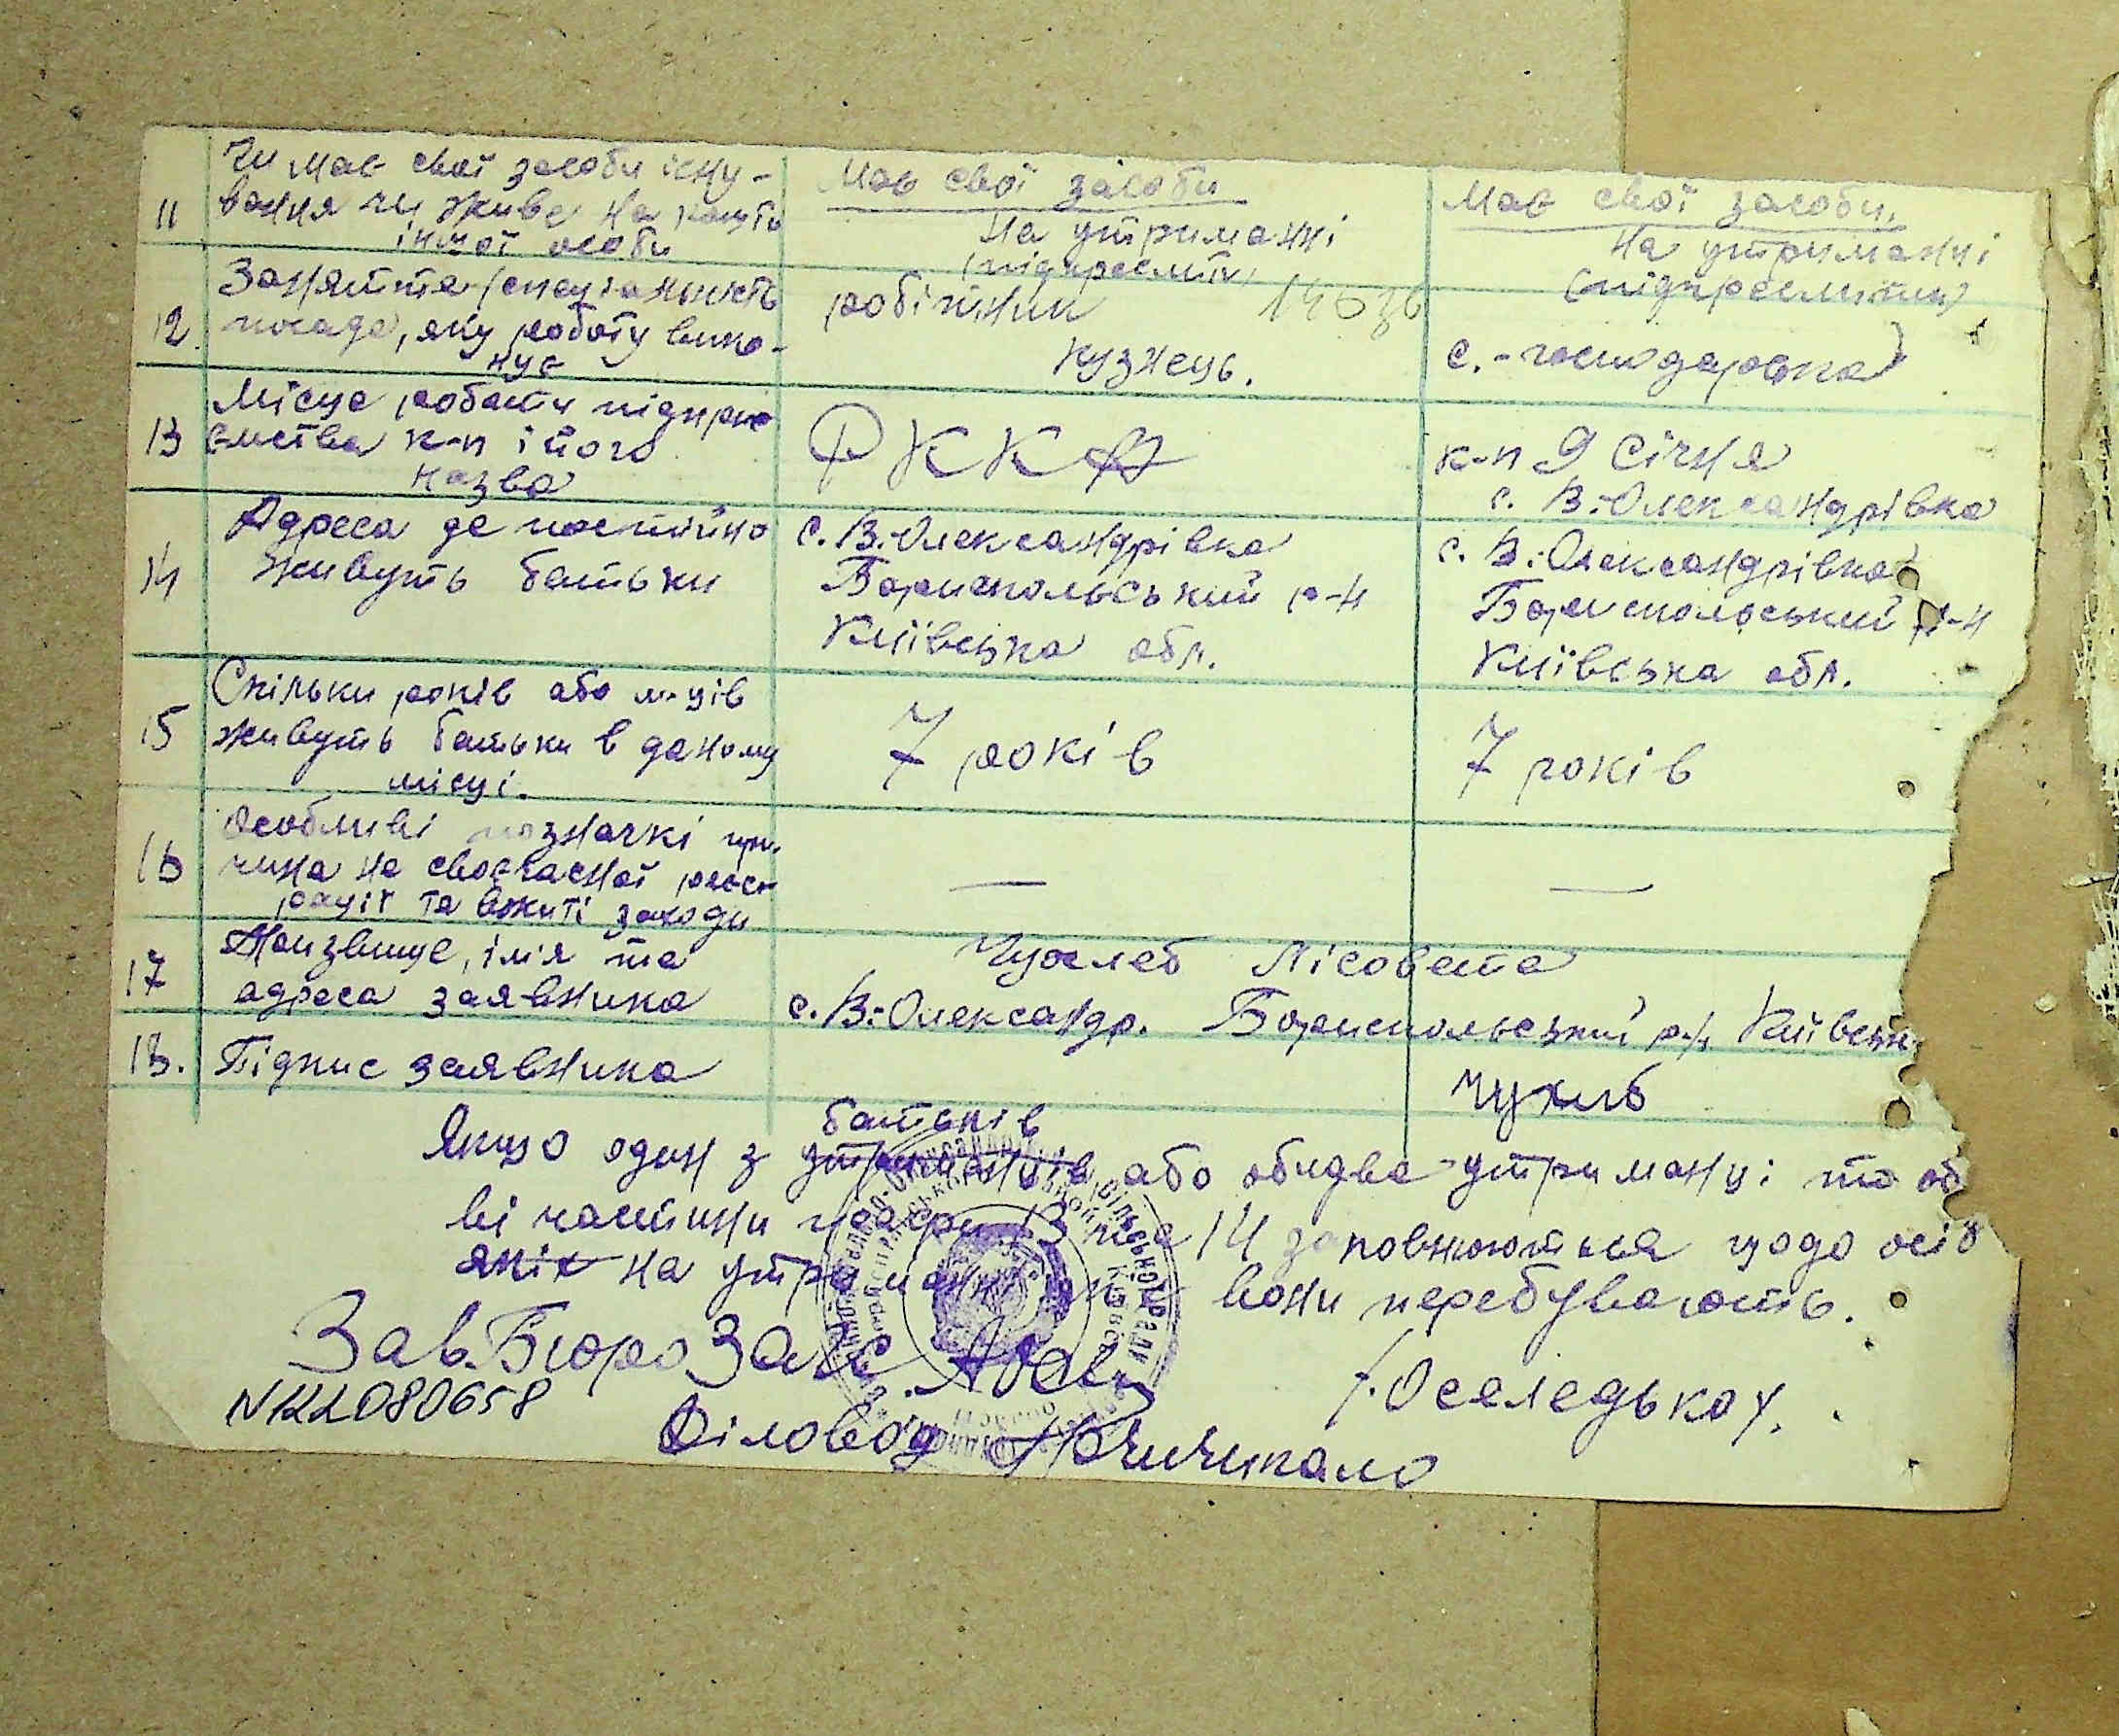 11
Чи має свої засоби існу-
вання чи живе на кошти
іншої особи
Має свої засоби
На утриманні
(підкреслити)
Має свої засоби.
На утриманні
(підкреслити)
12.
Заняття (спеціальність
посада, яку роботу вико-
нує
робітник
кузнець.
с.-господаровка
13
Місце роботи підпри
ємства к-п і його
назва
РККА
к-п 9 Січня
с. В.-Олександрівка
14
Адреса де постійно
живуть батьки
с. В.-Олександрівка
Бориспольський р-н
Київська обл.
с. В.-Олександрівка
Бориспольський р-н
Київська обл.
15
Скільки років або м-ців
живуть батьки в даному
місці.
7 років
7 років
16
Особливі позначкі при-
чина не своєчасної реєст
рації та вжиті заходи
—
—
17
Призвище, ім'я та
адреса заявника
Чухлеб Лісовета
с. В.-Олександр. Бориспольський р-н Київськ
18.
Підпис заявника
Чухлеб
батьків
Якщо один з утриманців або обидва утриманці то об
ві частини графи 13 та 14 заповнюються щодо осіб
яких на утриманні вони перебувають.
Зав. Бюро Загс
/. Оселедько у.
NKL080658
Діловод Ничипало